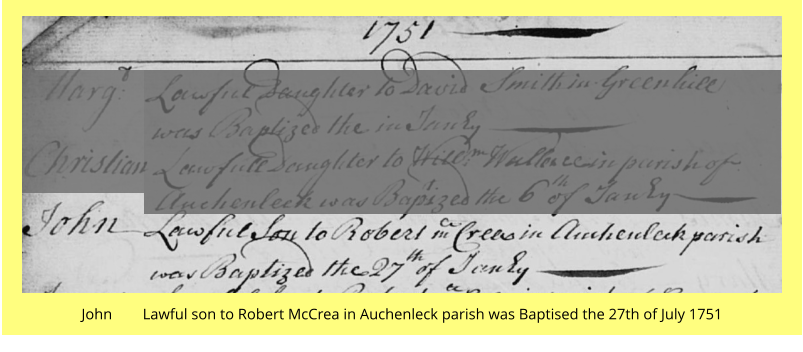 1751
Margt Lawful Daughter to David Smith in Greenhill
was Baptized the in Janry
Christian Lawfull Daughter to Willm Wallace in parish of
Auchenleck was Baptized the 6th of Janry
John Lawful Son to Robert mcCrea in Auchenleck parish
was Baptized the 27th of Janry
John Lawful son to Robert McCrea in Auchenleck parish was Baptised the 27th of July 1751